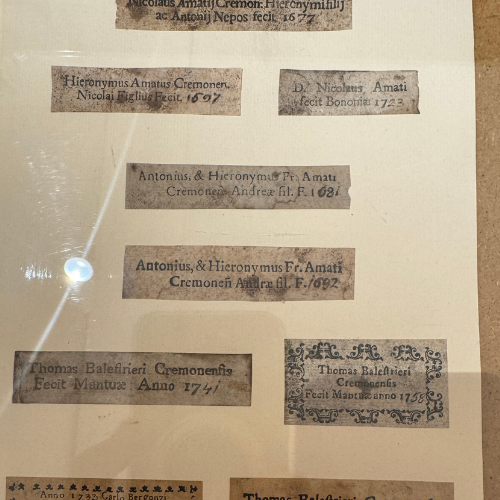 Nicolaus Amatij Cremon: Hieronymi filij
ac Antonij Nepos fecit 1677
Hieronymus Amatus Cremonen.
Nicolai Figlius Fecit. 1697
D. Nicolaus Amati
fecit Bononiæ 1723
Antonius, & Hieronymus Fr. Amati
Cremonen Andreæ fil. F. 1631
Antonius, & Hieronymus Fr. Amati
Cremoneñ Andreæ fil. F. 1692
Thomas Baleſtrieri Cremonenſis
Fecit Mantuæ Anno 1741
Thomas Baleſtrieri
Cremonenſis
Fecit Mantuæ anno 1755
Anno 1732 Carlo Bergonzi
Thomas